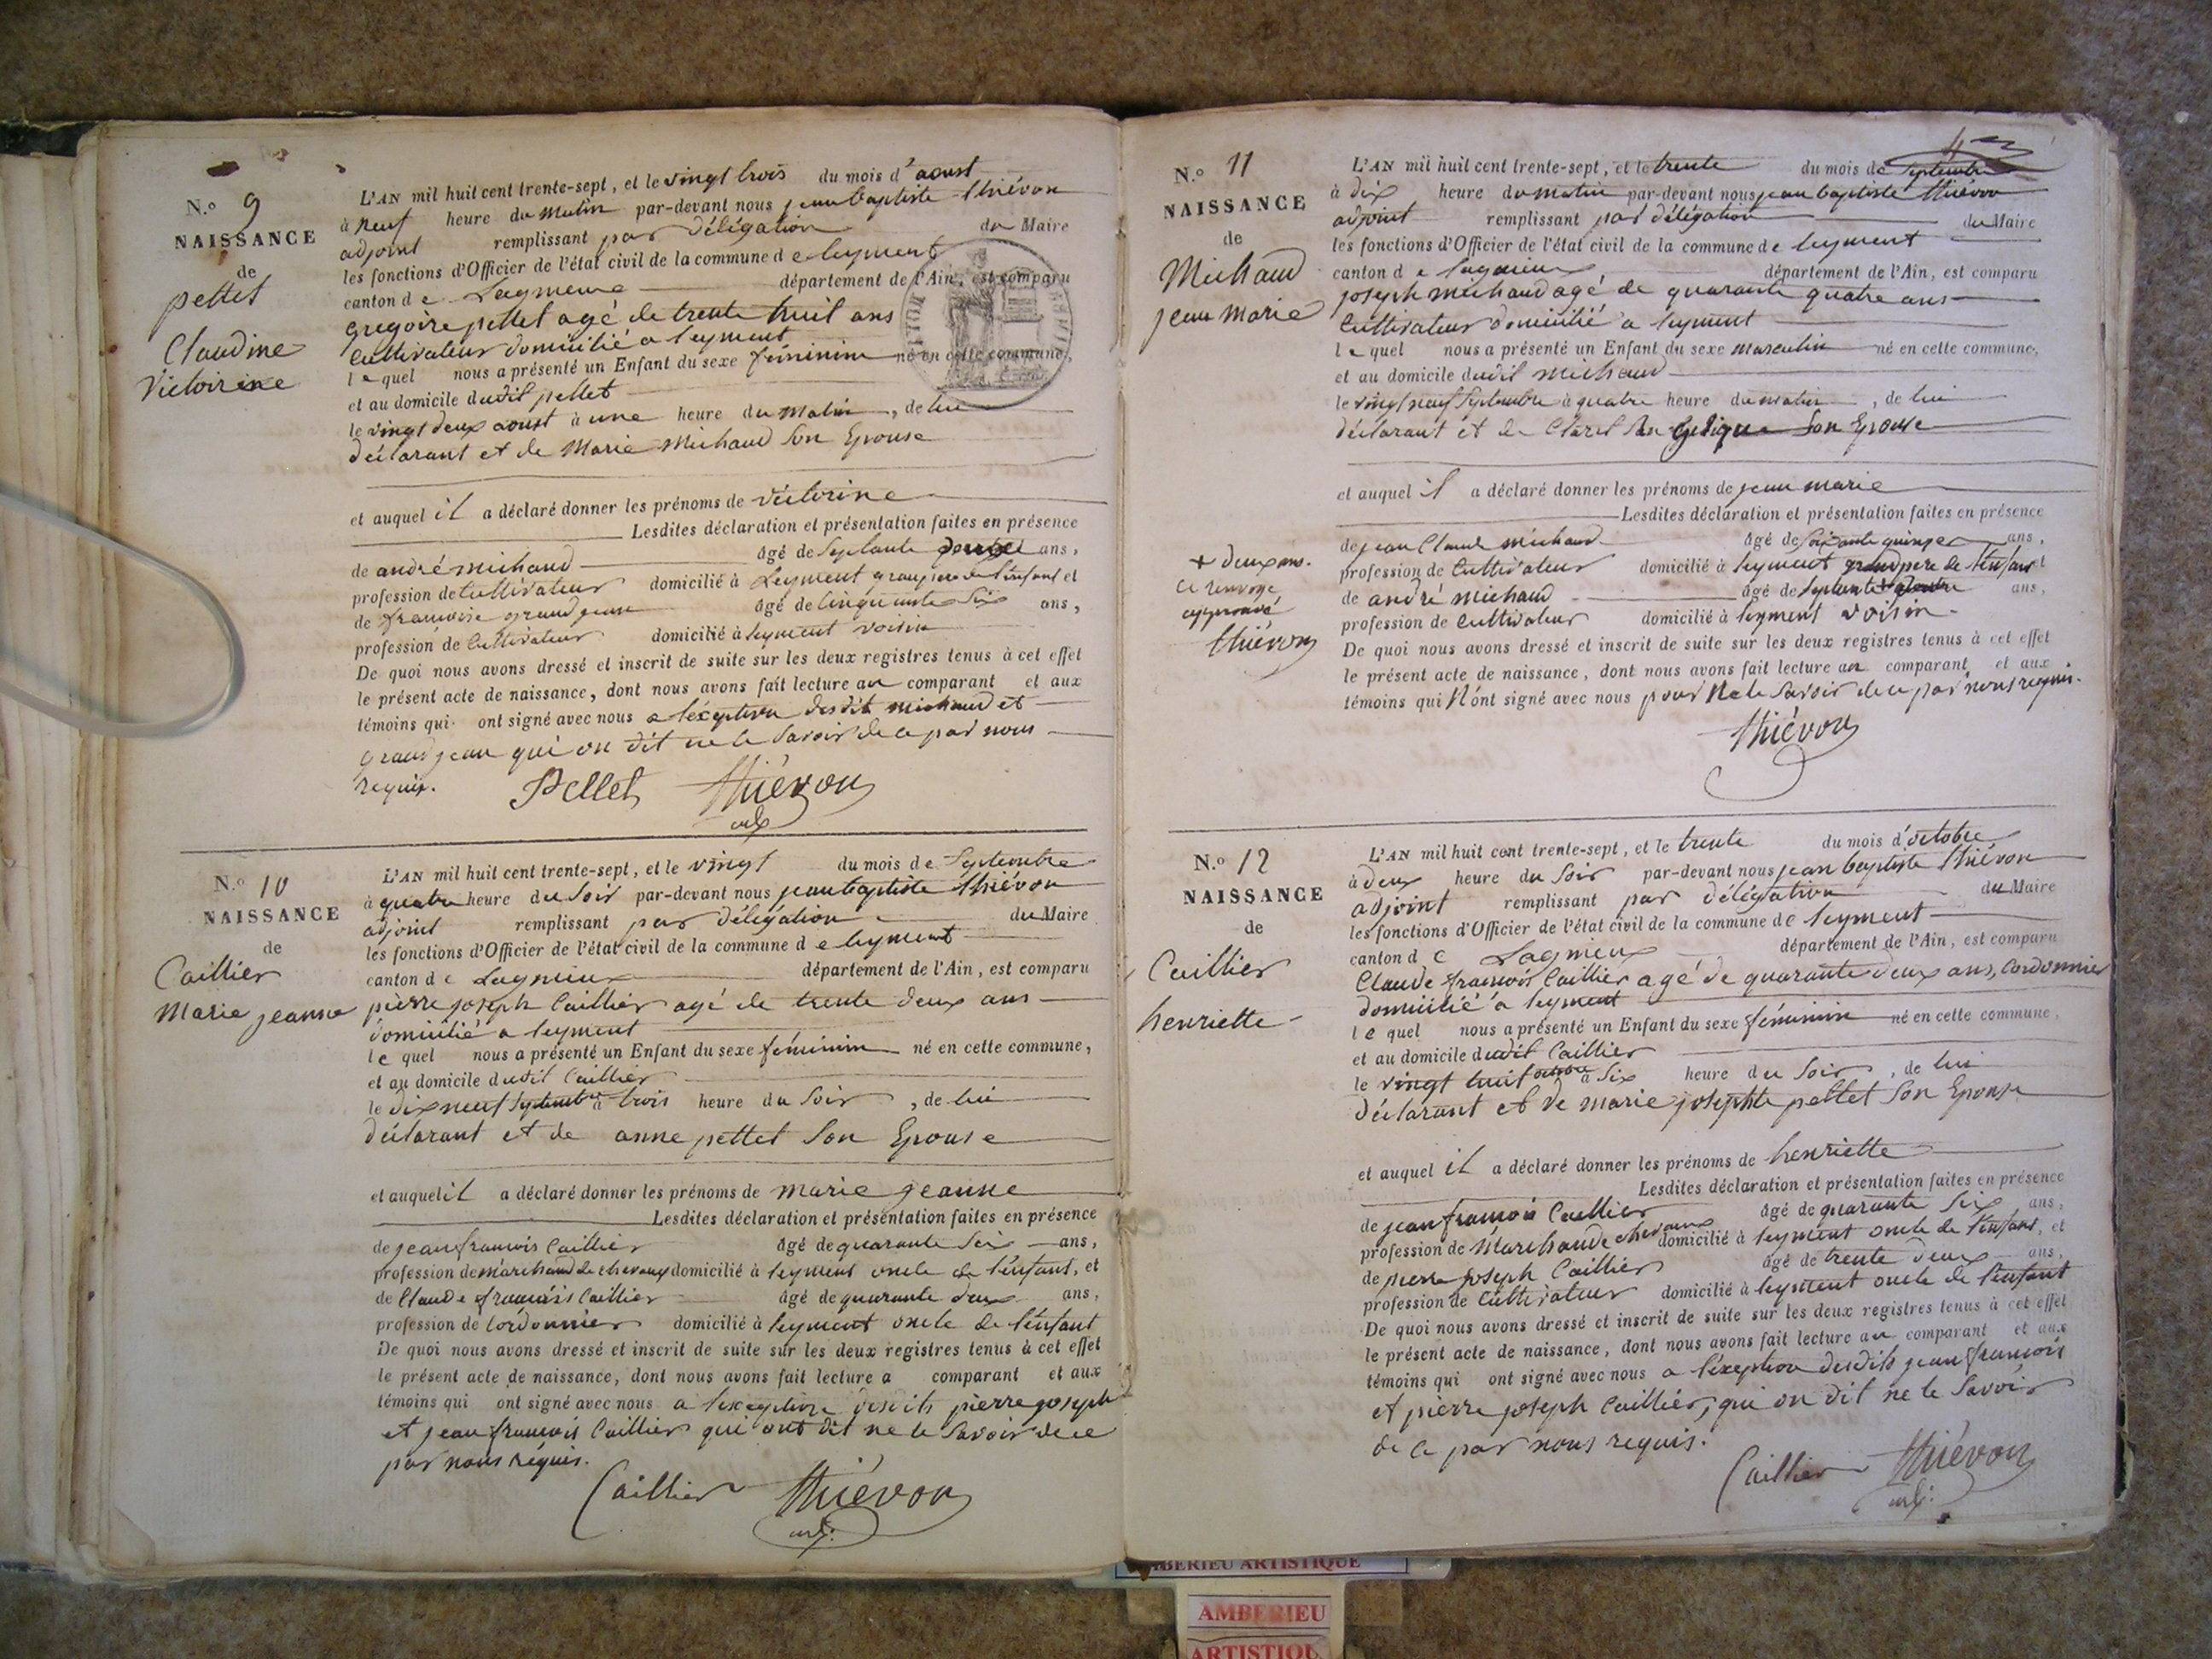 N.o 9
NAISSANCE
de
pettet
Claudine
Victoirine
L'AN mil huit cent trente-sept, et le vingt trois du mois d'aoust
à neuf heure du matin par-devant nous jean baptiste thiévon
adjoint remplissant par délégation du Maire
les fonctions d'Officier de l'état civil de la commune de leyment
canton de Lagnieux département de l'Ain, est comparu
gregoire pettet agé de trente huit ans
Cultivateur domicilié a leyment
lequel nous a présenté un Enfant du sexe féminim né en cette commune,
et au domicile dudit pettet
le vingt deux aoust à une heure du matin, de lui
déclarant et de Marie Michaud Son Epouse
et auquel il a déclaré donner les prénoms de victorine
Lesdites déclaration et présentation faites en présence
de andré michaud âgé de Septante ans,
profession de Cultivateur domicilié à Leyment grand pere de l'enfant et
de francoise grandjean âgé de Cinquante Six ans,
profession de Cultivateur domicilié à leyment voisin
De quoi nous avons dressé et inscrit de suite sur les deux registres tenus à cet effet
le présent acte de naissance, dont nous avons fait lecture au comparant et aux
témoins qui ont signé avec nous a l'éxeption desdit michaud et
grandjean qui on dit ne le Savoir de ce par nous
requis.
Pellet thiévon
adj.
N.o 10
NAISSANCE
de
Caillier
Marie jeanne
L'AN mil huit cent trente-sept, et le vingt du mois de Septembre
à quatre heure du Soir par-devant nous jean baptiste thiévon
adjoint remplissant par délégation du Maire
les fonctions d'Officier de l'état civil de la commune de leyment
canton de Lagnieux département de l'Ain, est comparu
pierre joseph Caillier agé de trente deux ans
domicilié a leyment
lequel nous a présenté un Enfant du sexe féminim né en cette commune,
et au domicile dudit Caillier
le dix neuf Septembre à trois heure du Soir, de lui
déclarant et de anne pettet Son Epouse
et auquel il a déclaré donner les prénoms de marie jeanne
Lesdites déclaration et présentation faites en présence
de jean francois Caillier âgé de quarante Six ans,
profession de marchand de chevaux domicilié à leyment oncle de l'enfant, et
de Claude francois Caillier âgé de quarante deux ans,
profession de Cordonnier domicilié à leyment oncle de l'enfant
De quoi nous avons dressé et inscrit de suite sur les deux registres tenus à cet effet
le présent acte de naissance, dont nous avons fait lecture a comparant et aux
témoins qui ont signé avec nous a l'exception desdits pierre joseph
et jean francois Caillier qui ont dit ne le Savoir de ce
par nous réquis.
Caillier thiévon
adj.
N.o 11
NAISSANCE
de
Michaud
jean marie
L'AN mil huit cent trente-sept, et le trente du mois de Septembre
à dix heure du matin par-devant nous jean baptiste thiévon
adjoint remplissant par délégation du Maire
les fonctions d'Officier de l'état civil de la commune de leyment
canton de Lagnieux département de l'Ain, est comparu
joseph michaud agé de quarante quatre ans
Cultivateur domicilié a leyment
lequel nous a présenté un Enfant du sexe masculin né en cette commune,
et au domicile dudit michaud
le vingt neuf Septembre à quatre heure du matin, de lui
déclarant et de Claret Son Epouse
et auquel il a déclaré donner les prénoms de jean marie
Lesdites déclaration et présentation faites en présence
de jean Claude michaud âgé de Soixante quinze ans,
profession de Cultivateur domicilié à leyment grand pere de l'enfant et
de andré michaud âgé de Septante + ans,
profession de Cultivateur domicilié à leyment voisin.
De quoi nous avons dressé et inscrit de suite sur les deux registres tenus à cet effet
le présent acte de naissance, dont nous avons fait lecture au comparant et aux
témoins qui N'ont signé avec nous pour Ne le Savoir de ce par nous requis.
thiévon
+ deux ans.
Ce renvoye
approuvé
thiévon
N.o 12
NAISSANCE
de
Caillier
henriette
L'AN mil huit cent trente-sept, et le trente du mois d'octobre
à deux heure du Soir par-devant nous jean baptiste thiévon
adjoint remplissant par délégation du Maire
les fonctions d'Officier de l'état civil de la commune de leyment
canton de Lagnieux département de l'Ain, est comparu
Claude francois Caillier agé de quarante deux ans, Cordonnier
domicilié a leyment
lequel nous a présenté un Enfant du sexe féminim né en cette commune,
et au domicile dudit Caillier
le vingt huit octobre à Six heure du Soir, de lui
déclarant et de marie josephte pettet Son Epouse
et auquel il a déclaré donner les prénoms de henriette
Lesdites déclaration et présentation faites en présence
de jean francois Caillier âgé de quarante Six ans,
profession de Marchand de chevaux domicilié à leyment oncle de l'enfant, et
de pierre joseph Caillier âgé de trente deux ans,
profession de Cultivateur domicilié à leyment oncle de l'enfant
De quoi nous avons dressé et inscrit de suite sur les deux registres tenus à cet effet
le présent acte de naissance, dont nous avons fait lecture au comparant et aux
témoins qui ont signé avec nous a l'éxeption desdits jean francois
et pierre joseph Caillier, qui on dit ne le Savoir
de ce par nous requis.
Caillier thiévon
adj.
AMBERIEU ARTISTIQUE
AMBERIEU
ARTISTIQU